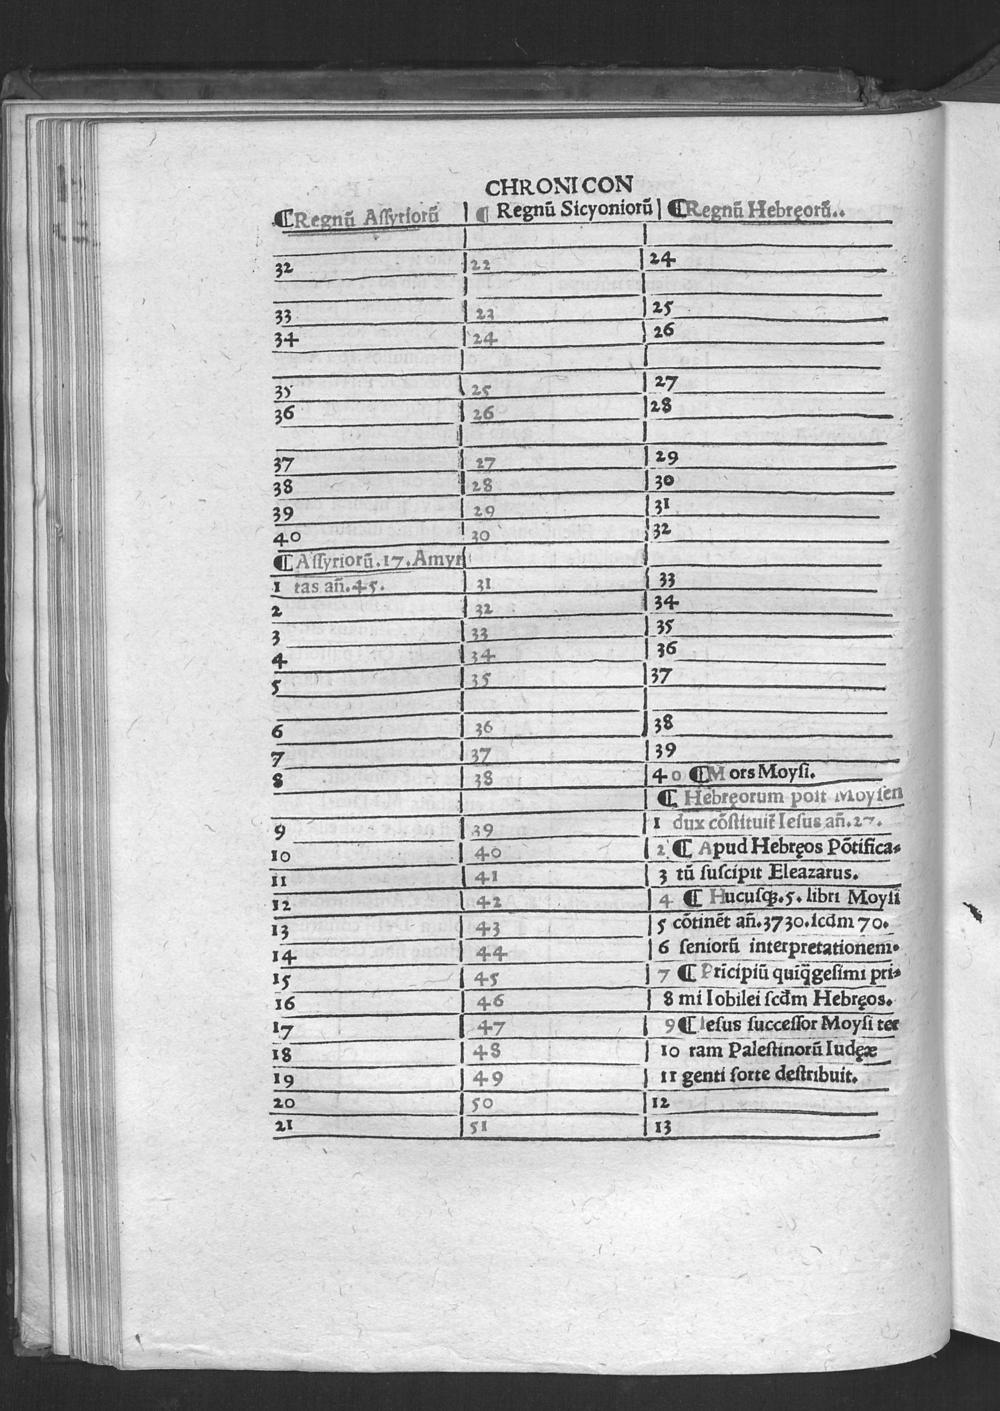 CHRONICON
¶ Regnũ Aſſyriorũ | ¶ Regnũ Sicyoniorũ | ¶ Regnũ Hebręorũ..
32 | 22 | 24
33 | 23 | 25
34 | 24 | 26
35 | 25 | 27
36 | 26 | 28
37 | 27 | 29
38 | 28 | 30
39 | 29 | 31
40 | 30 | 32
¶ Aſſyriorũ.17.Amyr
1 tas añ.45. | 31 | 33
2 | 32 | 34
3 | 33 | 35
4 | 34 | 36
5 | 35 | 37
6 | 36 | 38
7 | 37 | 39
8 | 38 | 40 ¶ Mors Moyſi.
¶ Hebręorum poſt Moyſen
9 | 39 | 1 dux cõſtituit̃ Ieſus añ.27.
10 | 40 | 2 ¶ Apud Hebręos Põtifica-
11 | 41 | 3 tũ ſuſcipit Eleazarus.
12 | 42 | 4 ¶ Hucuſq́;.5. libri Moyſi
13 | 43 | 5 cõtinẽt añ.3730.ſcdm 70.
14 | 44 | 6 ſeniorũ interpretationem.
15 | 45 | 7 ¶ Pricipiũ quiq̃geſimi pri-
16 | 46 | 8 mi Iobilei ſcdm Hebręos.
17 | 47 | 9 ¶ Ieſus ſucceſſor Moyſi ter
18 | 48 | 10 ram Paleſtinorũ Iudęæ
19 | 49 | 11 genti ſorte deſtribuit.
20 | 50 | 12
21 | 51 | 13